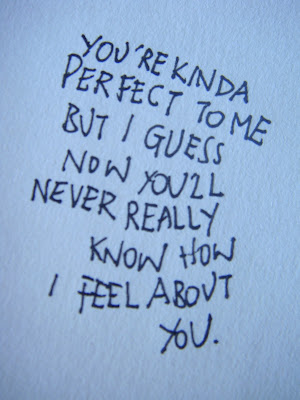 YOU'RE KINDA
PERFECT TO ME
BUT I GUESS
NOW YOU'LL
NEVER REALLY
KNOW HOW
I FEEL ABOUT
YOU.